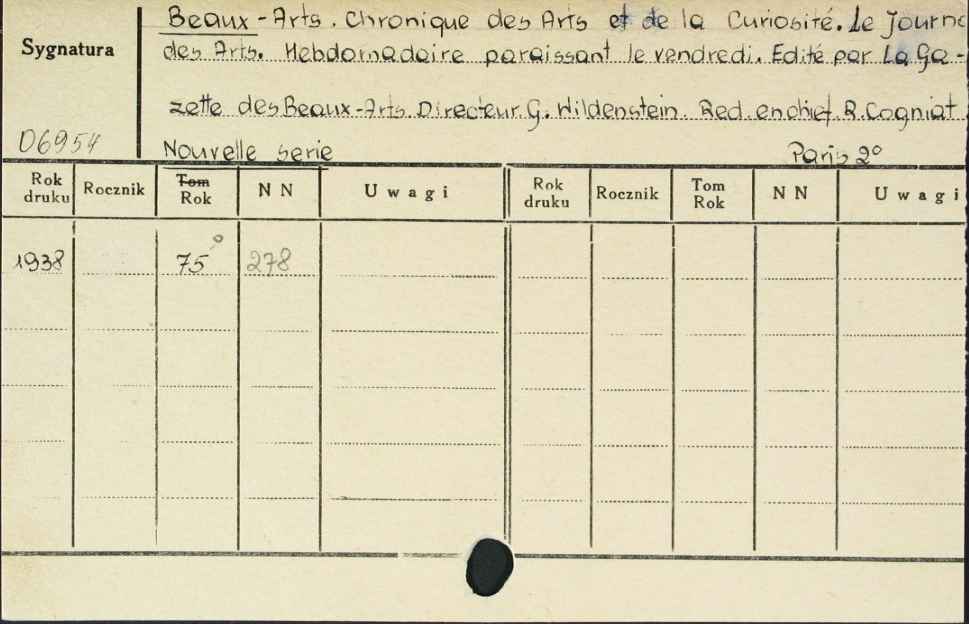 Beaux-Arts. Chronique des Arts et de la Curiosité. Le Journa
Sygnatura
des Arts. Hebdomadaire paraissant le vendredi. Edité par La Ga-
zette des Beaux-Arts. Directeur G. Wildenstein. Red. en chief R. Cogniat.
06954
Nouvelle serie Paris 2°
Rok druku Rocznik Tom Rok NN Uwagi Rok druku Rocznik Tom Rok NN Uwagi
1938 75° 278